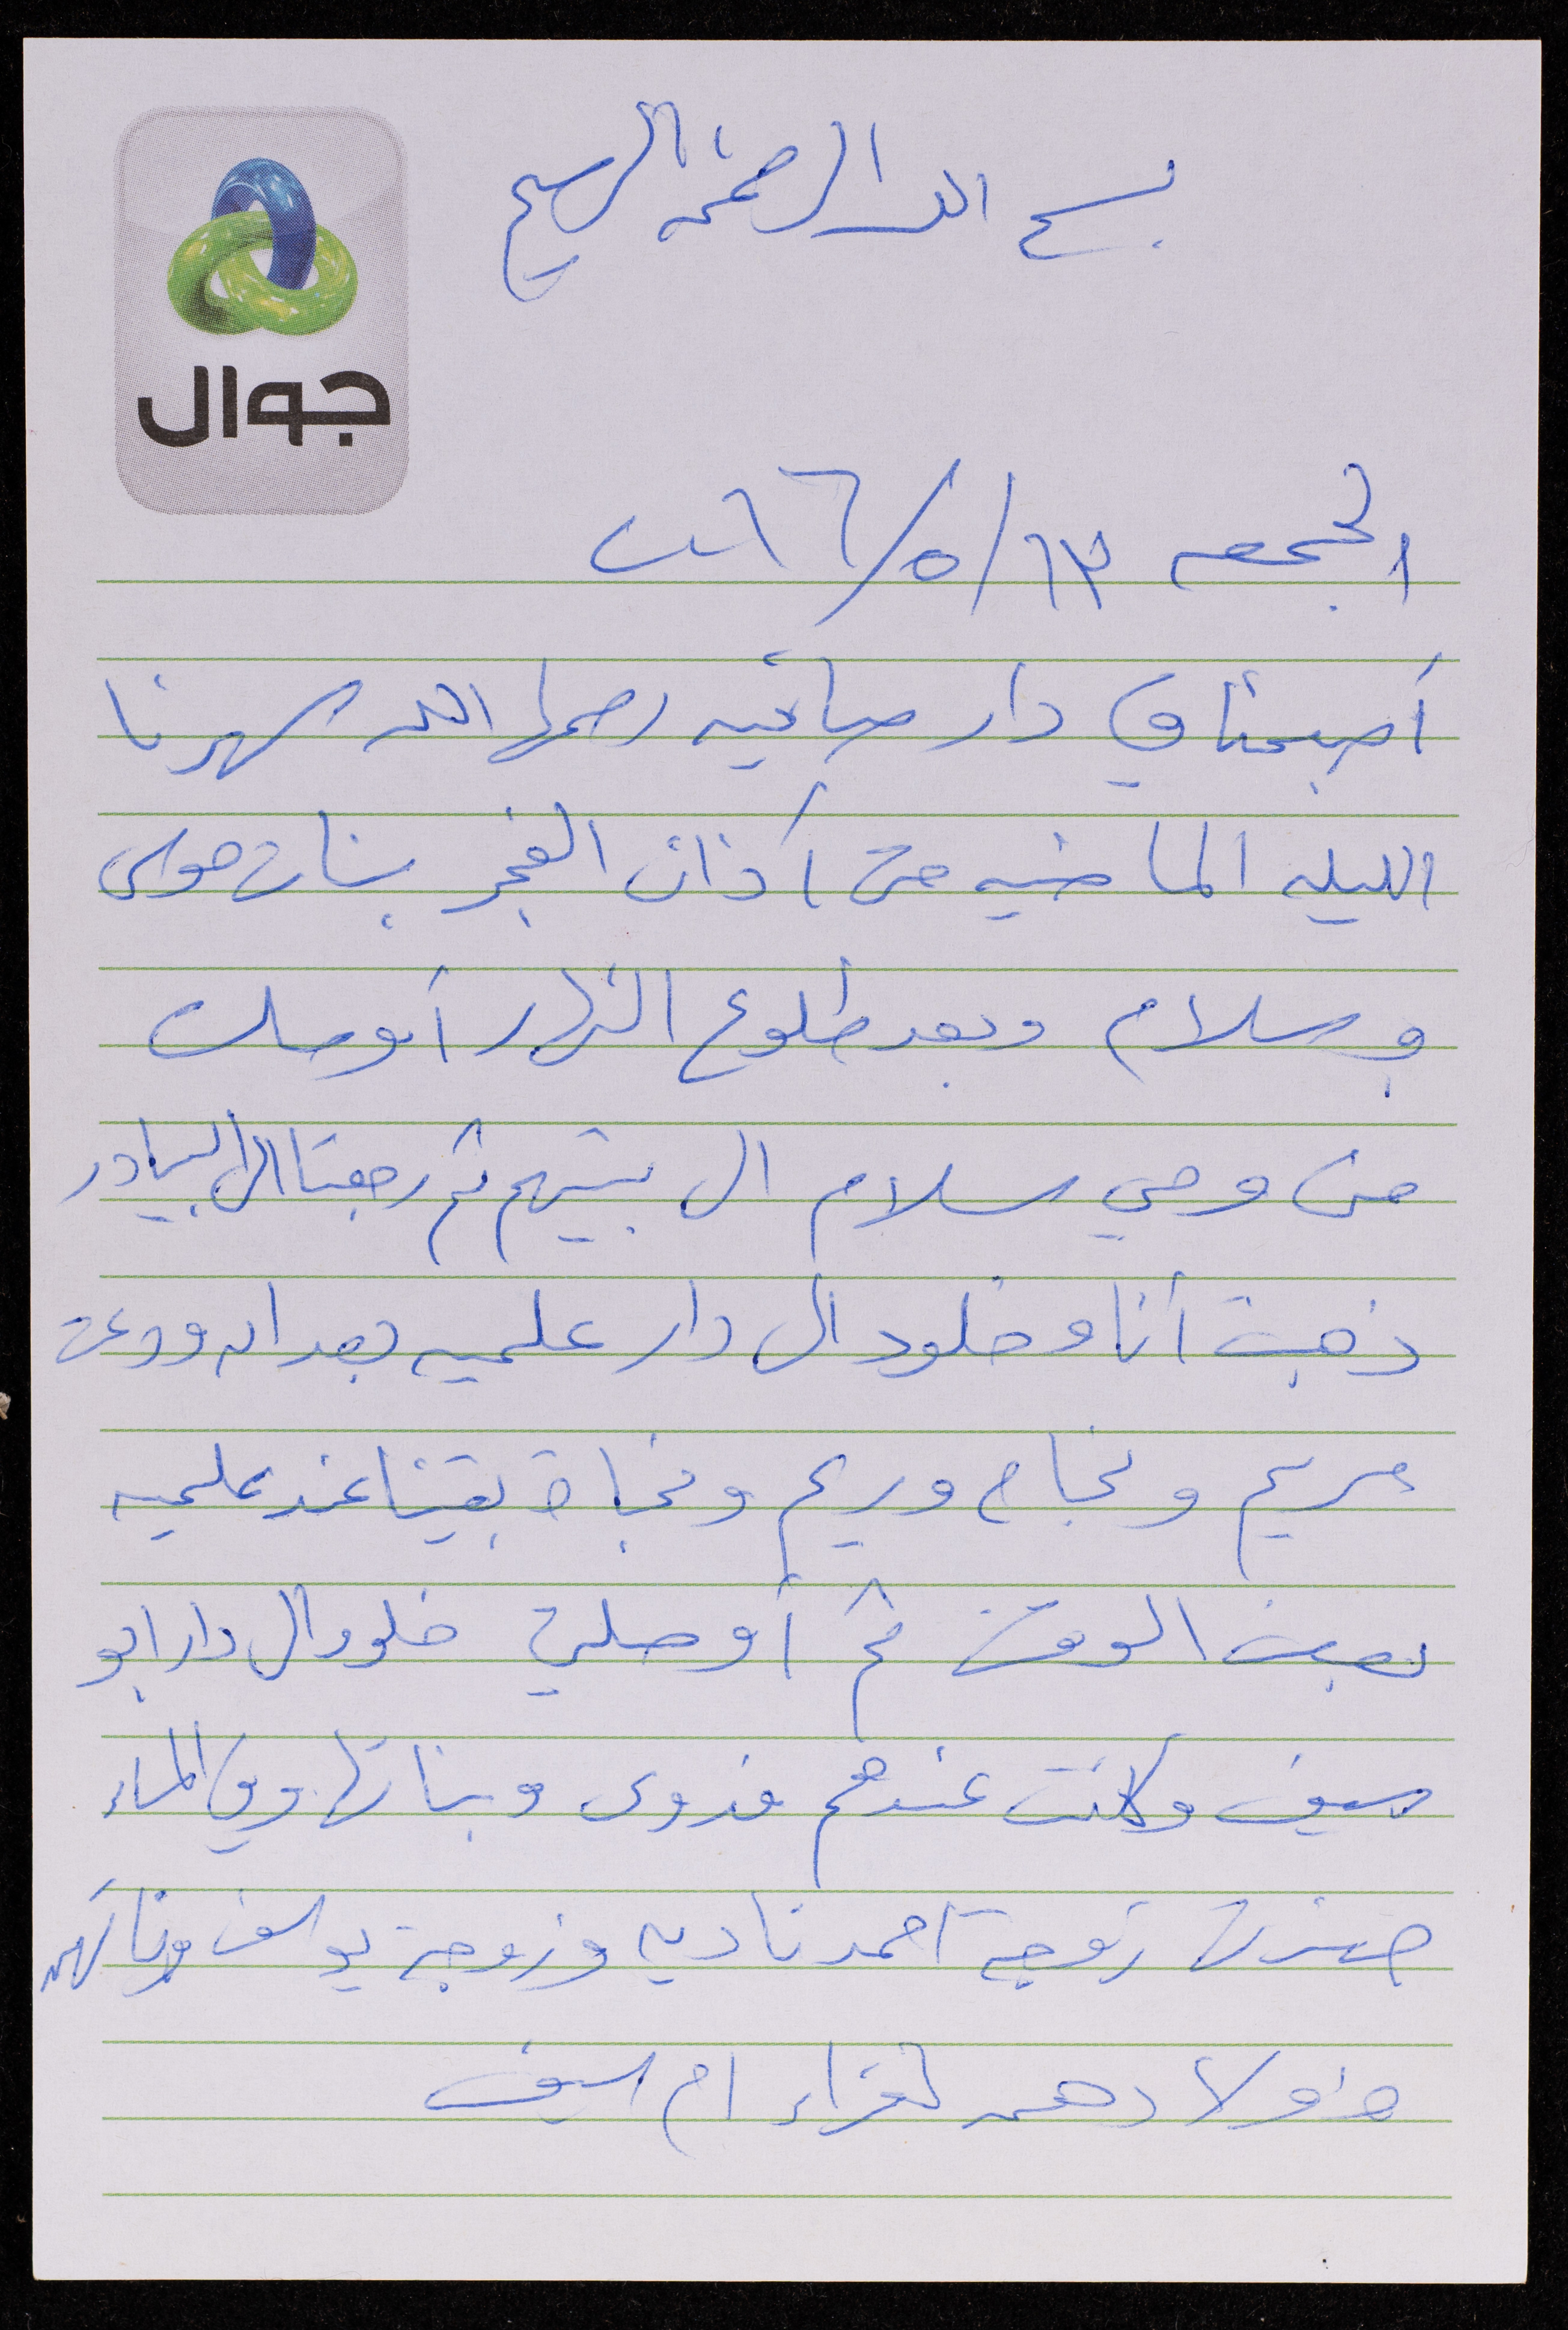 بسم الله الرحمن الرحيم
جوال
الجمعه ١٣/٥/٢٠١٦
أصبحنا في دار صافيه رحمها الله سهرنا
الليله الماضيه حتى أذان الفجر بنات موسى
وسلام وبعد طلوع النهار أوصلت
منى ومي سلام الى بيتهم ثم رجعنا الى البيادر
ذهبت أنا وخلود الى دار علميه بعد ان ودعت
مريم ونجاح وريم ونجاة بقينا عند علميه
بعض الوقت ثم أوصلت خلود الى دار ابو
سيف وكانت عندهم فدوى وبناتها وفي المساء
حضرت زوجة احمد ناديه وزوجة يوسف وبناتهن
وأولادهم لعزاء ام سيف